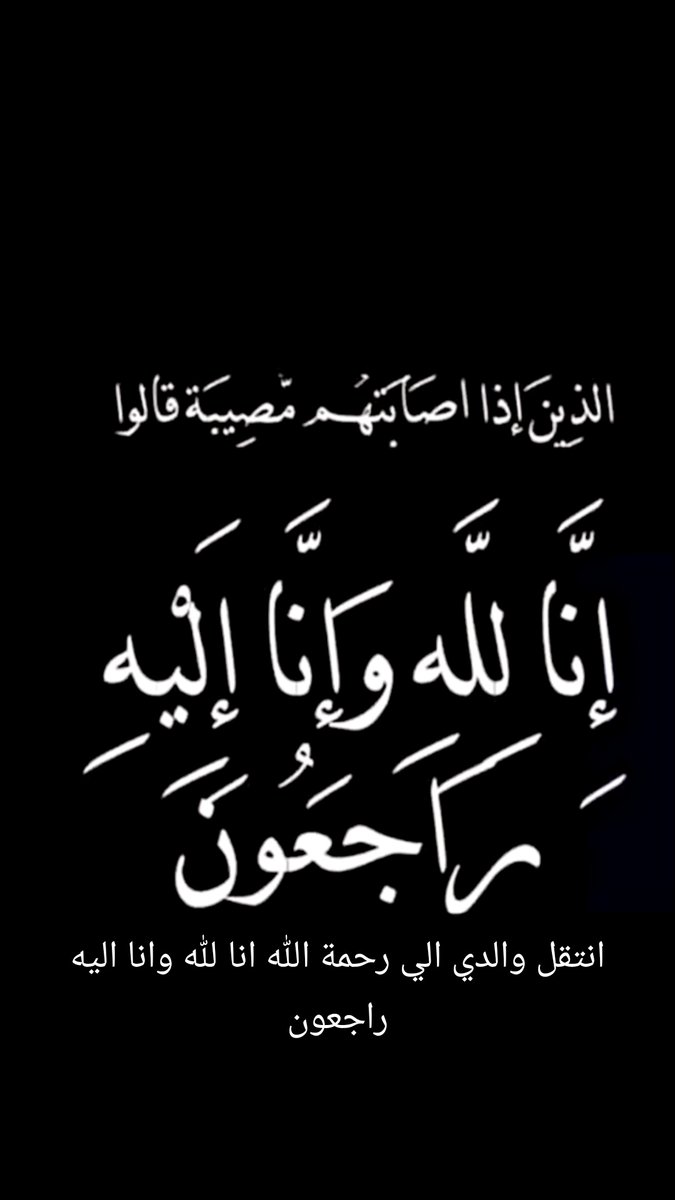 الذِينَ إذا اصَابَتهُم مّصِيبَة قالوا
إِنَّا لله وَإِنَّا إِلَيْهِ
رَاجَعُونَ
انتقل والدي الي رحمة الله انا لله وانا اليه
راجعون